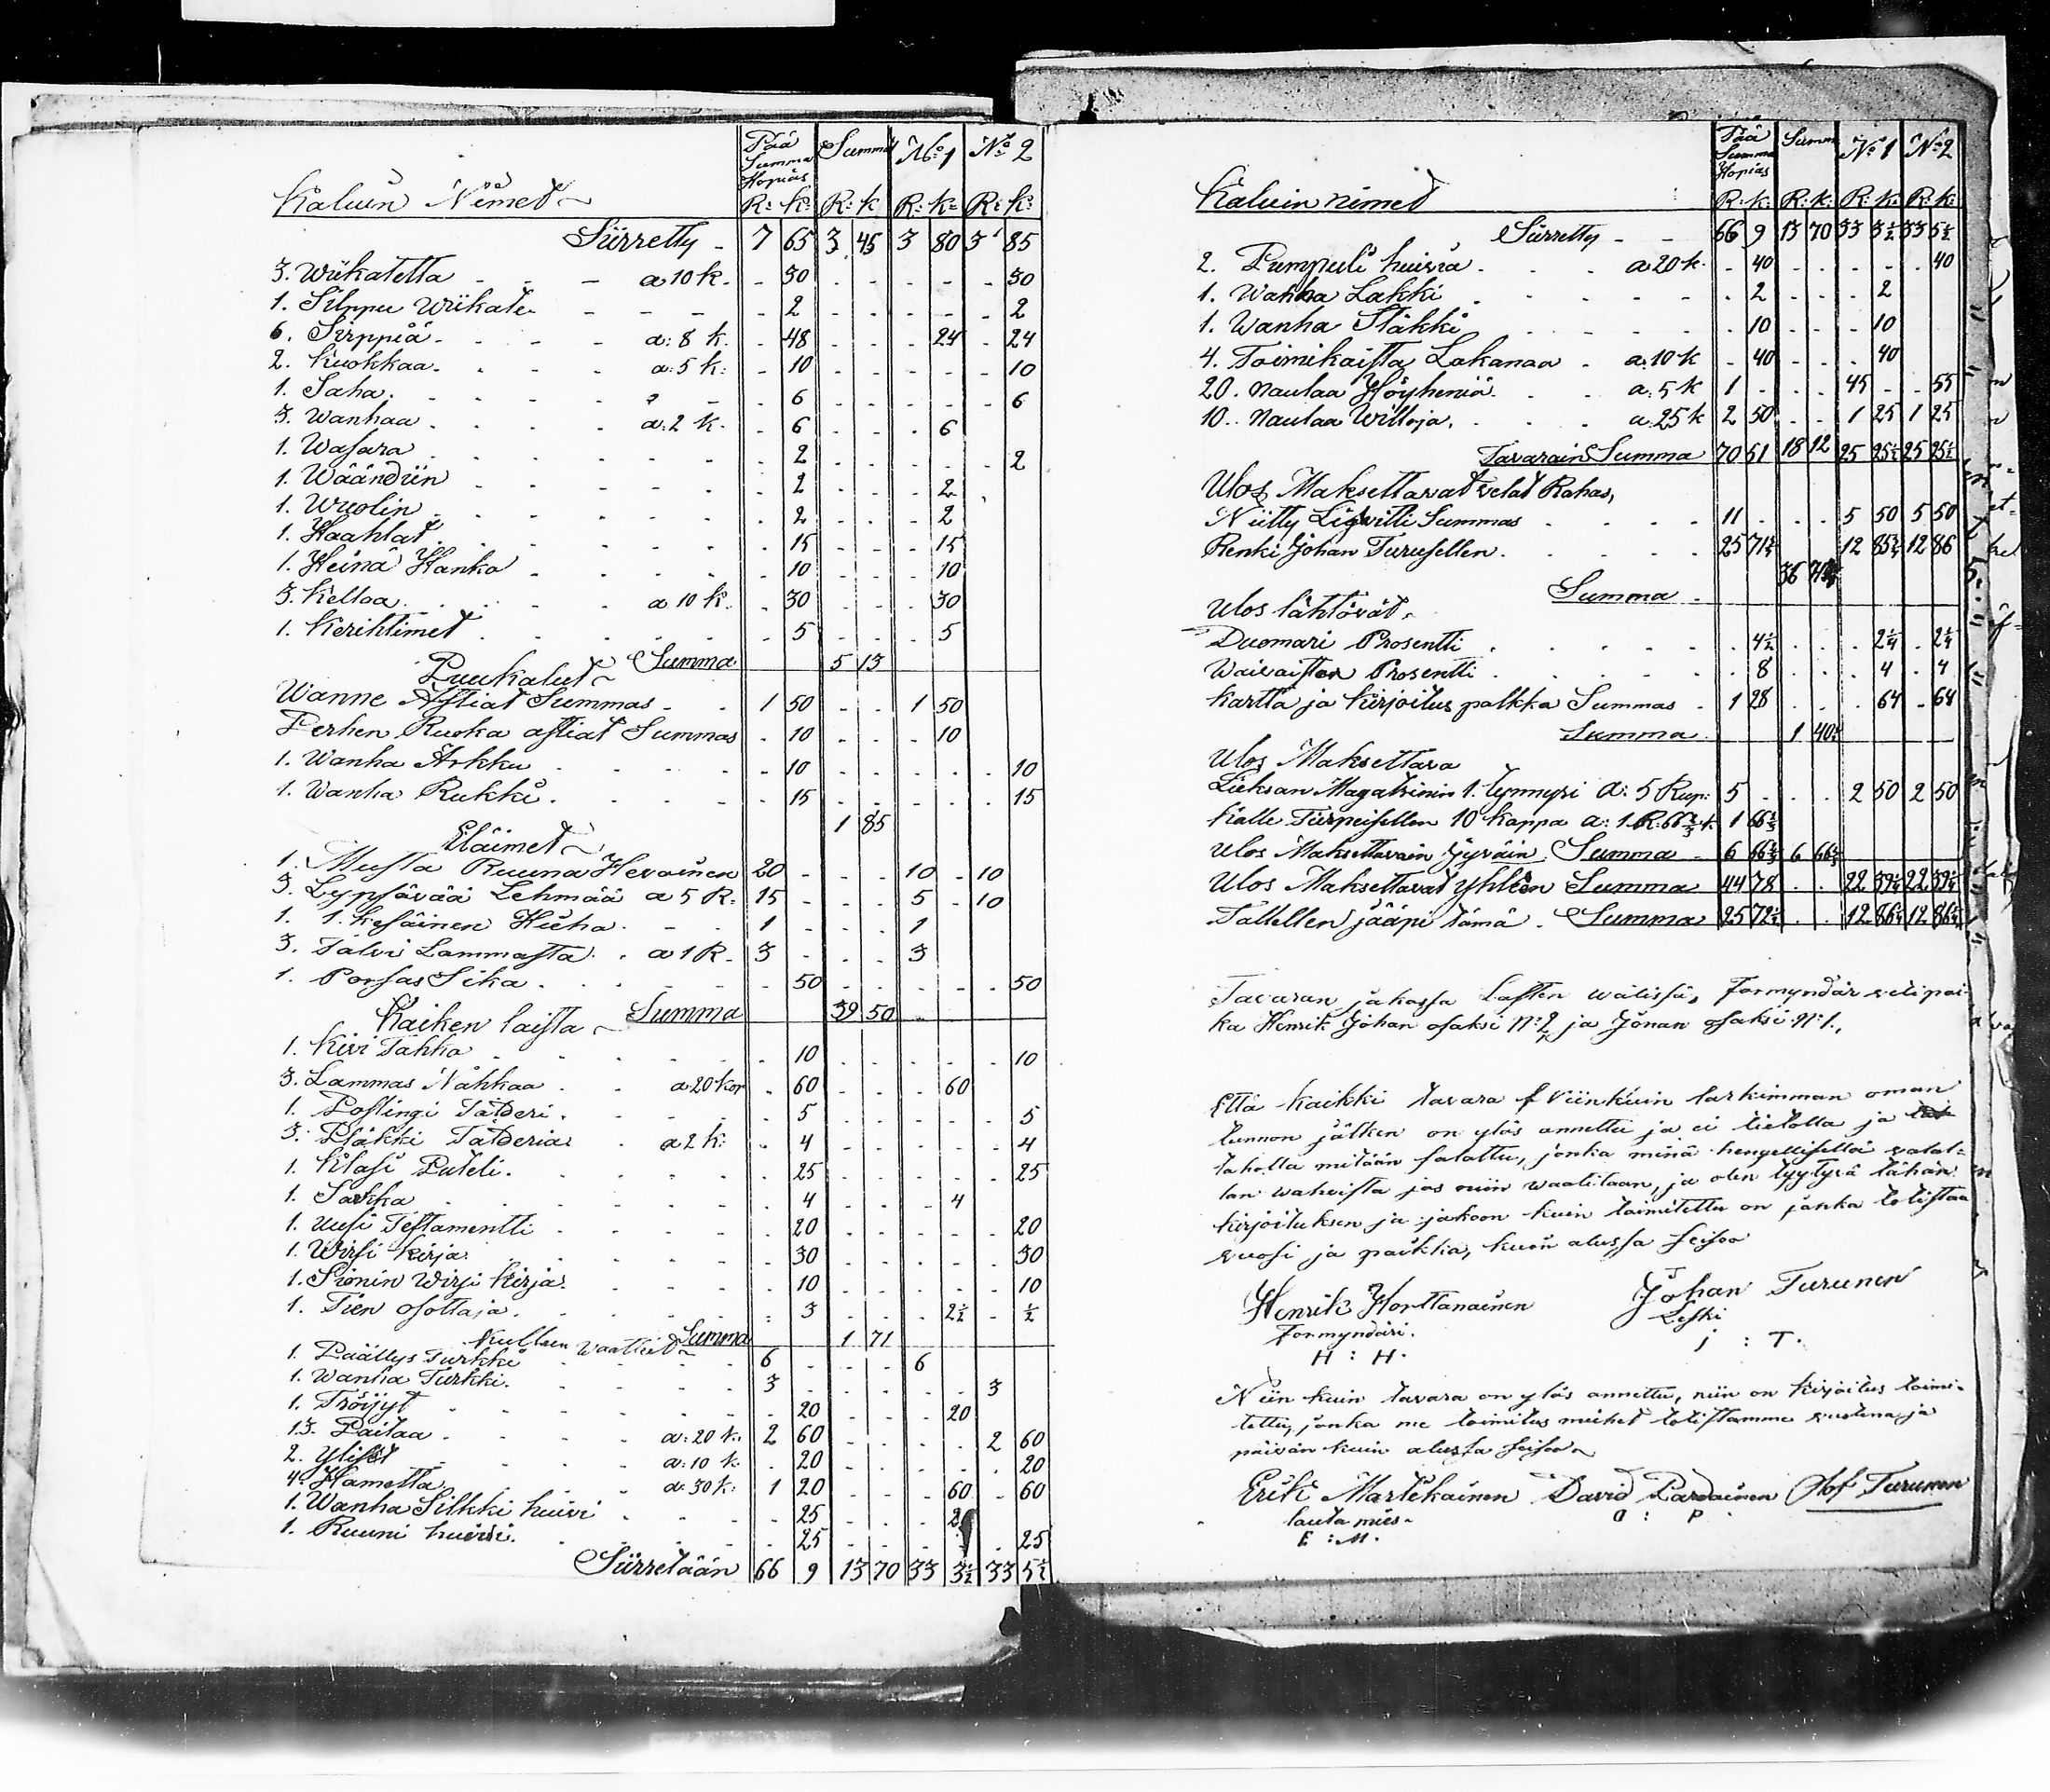 Pää Summa Hopias Summa No 1 No 2
Kaluin Nimet R: k: R: k R: k: R: k:
Siirretty - 7 65 3 45 3 80 3 85
3. Wiikatetta - - - a 10 k. - 30 30
1. Silppu Wiikate - - - - 2 2
6. Sirppiä - - - a: 8 k. - 48 24 24
2. Kuokkaa - - a: 5 k: 10 10
1. Saha - - 6 6
3. Wanhaa - - a: 2 k. 6 6
1. Wasara 2 2
1. Wäändiin 2 2
1. Wuolin 2 2
1. Haahlat 15 15
1. Heinä Hanko 10 10
3. Kelloa a 10 k. 30 30
1. Kerihtimet 5 5
Summa 5 13
Puukalut
Wanne Astiat Summas - 1 50 1 50
Perhen Ruoka astiat Summas 10 10
1. Wanha Arkku 10 10
1. Wanha Rukki 15 15
1 85
Eläimet
1. Musta Ruuna Hevoinen 20 10 10
3. Lypsävää Lehmää a 5 R: 15 5 10
1. 1. kesäinen Hieho 1 1
3. Talvi Lammasta a 1 R - 3 3
1. Porsas Sika 50 50
Summa 39 50
Kaiken laista
1. Kivi Tahko 10 10
3. Lammas Nahkaa a 20 kop 60 60
1. Poslingi Tätderi 5 5
3. Pläkki Tätderia a 2 k: 4 4
1. Klasi Puteli 25 25
1. Sarkka 4 4
1. Uusi Testamentti 20 20
1. Wirsi kirja 30 30
1. Sionin Wirsi kirja 10 10
1. Tien osottaja 3 2½ ½
Summa 1 71
Kulleen Waattiet
1. Päällys Turkki 6 6
1. Wanha Turkki 3 3
1. Tröijyt 20 20
13. Paitaa a: 20 k. 2 60 2 60
2. Yliset a: 10 k. 20 20
4. Hametta a: 30 k: 1 20 60 60
1. Wanha Silkki huivi 25 2
1. Ruuni huivi 25 25
Siirretään 66 9 13 70 33 3½ 33 5½
Pää Summa Hopias Summa No 1 No 2
Kaluin nimet R: k: R: k: R: k: R: k:
Siirretty - - 66 9 13 70 33 3½ 33 5½
2. Pumpuli huivia a 20 k. 40 40
1. Wanha Lakki 2 2
1. Wanha Släkki 10 10
4. Toimikaista Lakanaa a: 10 k 40 40
20. Naulaa Höyheniä a: 5 k 1 45 55
10. Naulaa Willoja a: 25 k 2 50 1 25 1 25
Tavarain Summa 70 51 18 12 25 25½ 25 25½
Ulos Maksettavat velat Rahas,
Niitty Ligvitti Summas 11 5 50 5 50
Renki Johan Turusellen 25 71¾ 12 85¾ 12 86
Summa 36
Ulos lähtövät
Duomari Prosentti 4½ 2¼ 2¼
Waivaisten Prosentti 8 4 4
Kartta ja kirjoitus palkka Summas 1 28 64 64
Summa 1 40½
Ulos Maksettava
Lieksan Magatsinin 1. tynnyri a: 5 Rup: 5 2 50 2 50
Kalle Turpeisellen 10 kappa a: 1 R: 66⅔ k. 1 66⅔
Ulos Maksettavain Jyväin Summa 6 66⅔ 6 66⅔
Ulos Maksettavat yhteen Summa 44 78 22 39¼ 22 39¼
Tallellen jääpi tämä Summa 25 72½ 12 86¼ 12 86¼
Tavaran jakossa Lasten wälissä, Formyndär velipoi-
ka Henrik Johan osaksi No 2, ja Jonan osaksi No 1.,
Että kaikki tavara niinkuin tarkimman oman
tunnon jälken on ylös annettu ja ei tietolla ja
taholla mitään salattu, jonka minä hengellisellä valal-
lan wahvista jos niin waaditaan, ja olen tyytyvä tähän
kirjoituksen ja jakoon kuin toimitettu on jonka totistaa
vuosi ja paikka, kuin alussa seisoo
Henrik Horttanainen Johan Turunen
Formyndäri. Leski
H : H. J : T.
Niin kuin tavara on ylös annettu, niin on kirjoitus toimi-
tettu, jonka me toimitus miehet totistamme vuotena ja
päivän kuin alussa seisoo
Erik Martikainen David Pardainen Olof Turunen
lauta mies D : P.
E : M.